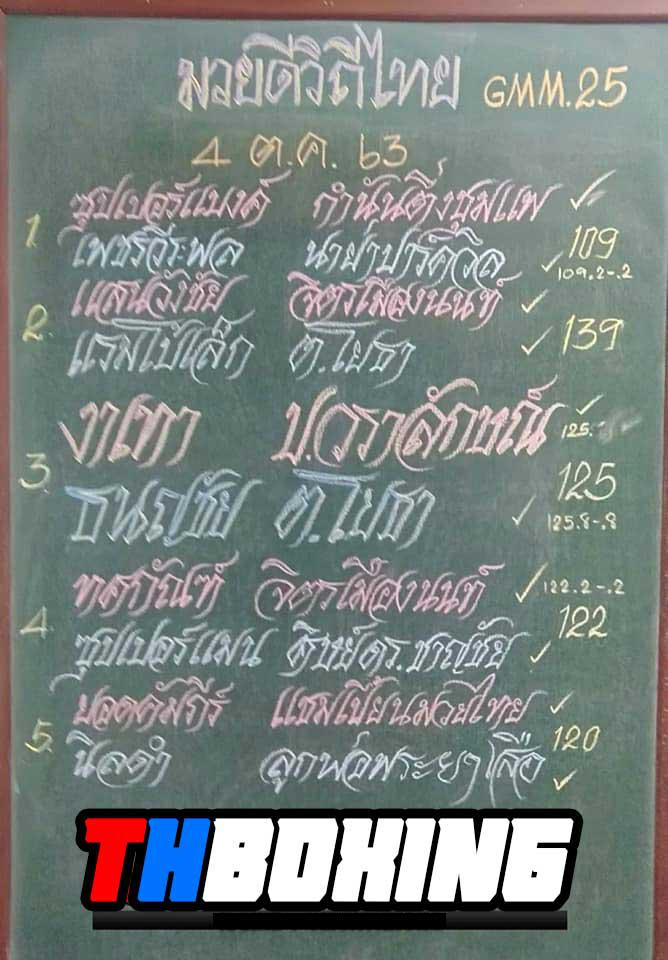 มวยดีวิถีไทย GMM.25
4 ต.ค. 63
1. ซุปเปอร์แบงค์ กำนันติ่งชุมแพ ✓
เพชรวีระพล นาย่าปาร์ควิล ✓ 109 109.2-.2
2. แสนวังชัย จิตรเมืองนนท์ ✓
แรมโบ้เล็ก ต.โยธา ✓ 139
3. งาเทา ป.วราลักษณ์ ✓ 125.
ธนญชัย ต.โยธา ✓ 125 125.8-.8
4. ทศกัณฑ์ จิตรเมืองนนท์ ✓ 122.2-.2
ซุปเปอร์แมน ศิษย์ดร.ชาญชัย ✓ 122
5. ยอดคัมภีร์ แชมเปี้ยนมวยไทย ✓
นิลดำ ลูกพ่อพระยาเสือ ✓ 120
THBOXING